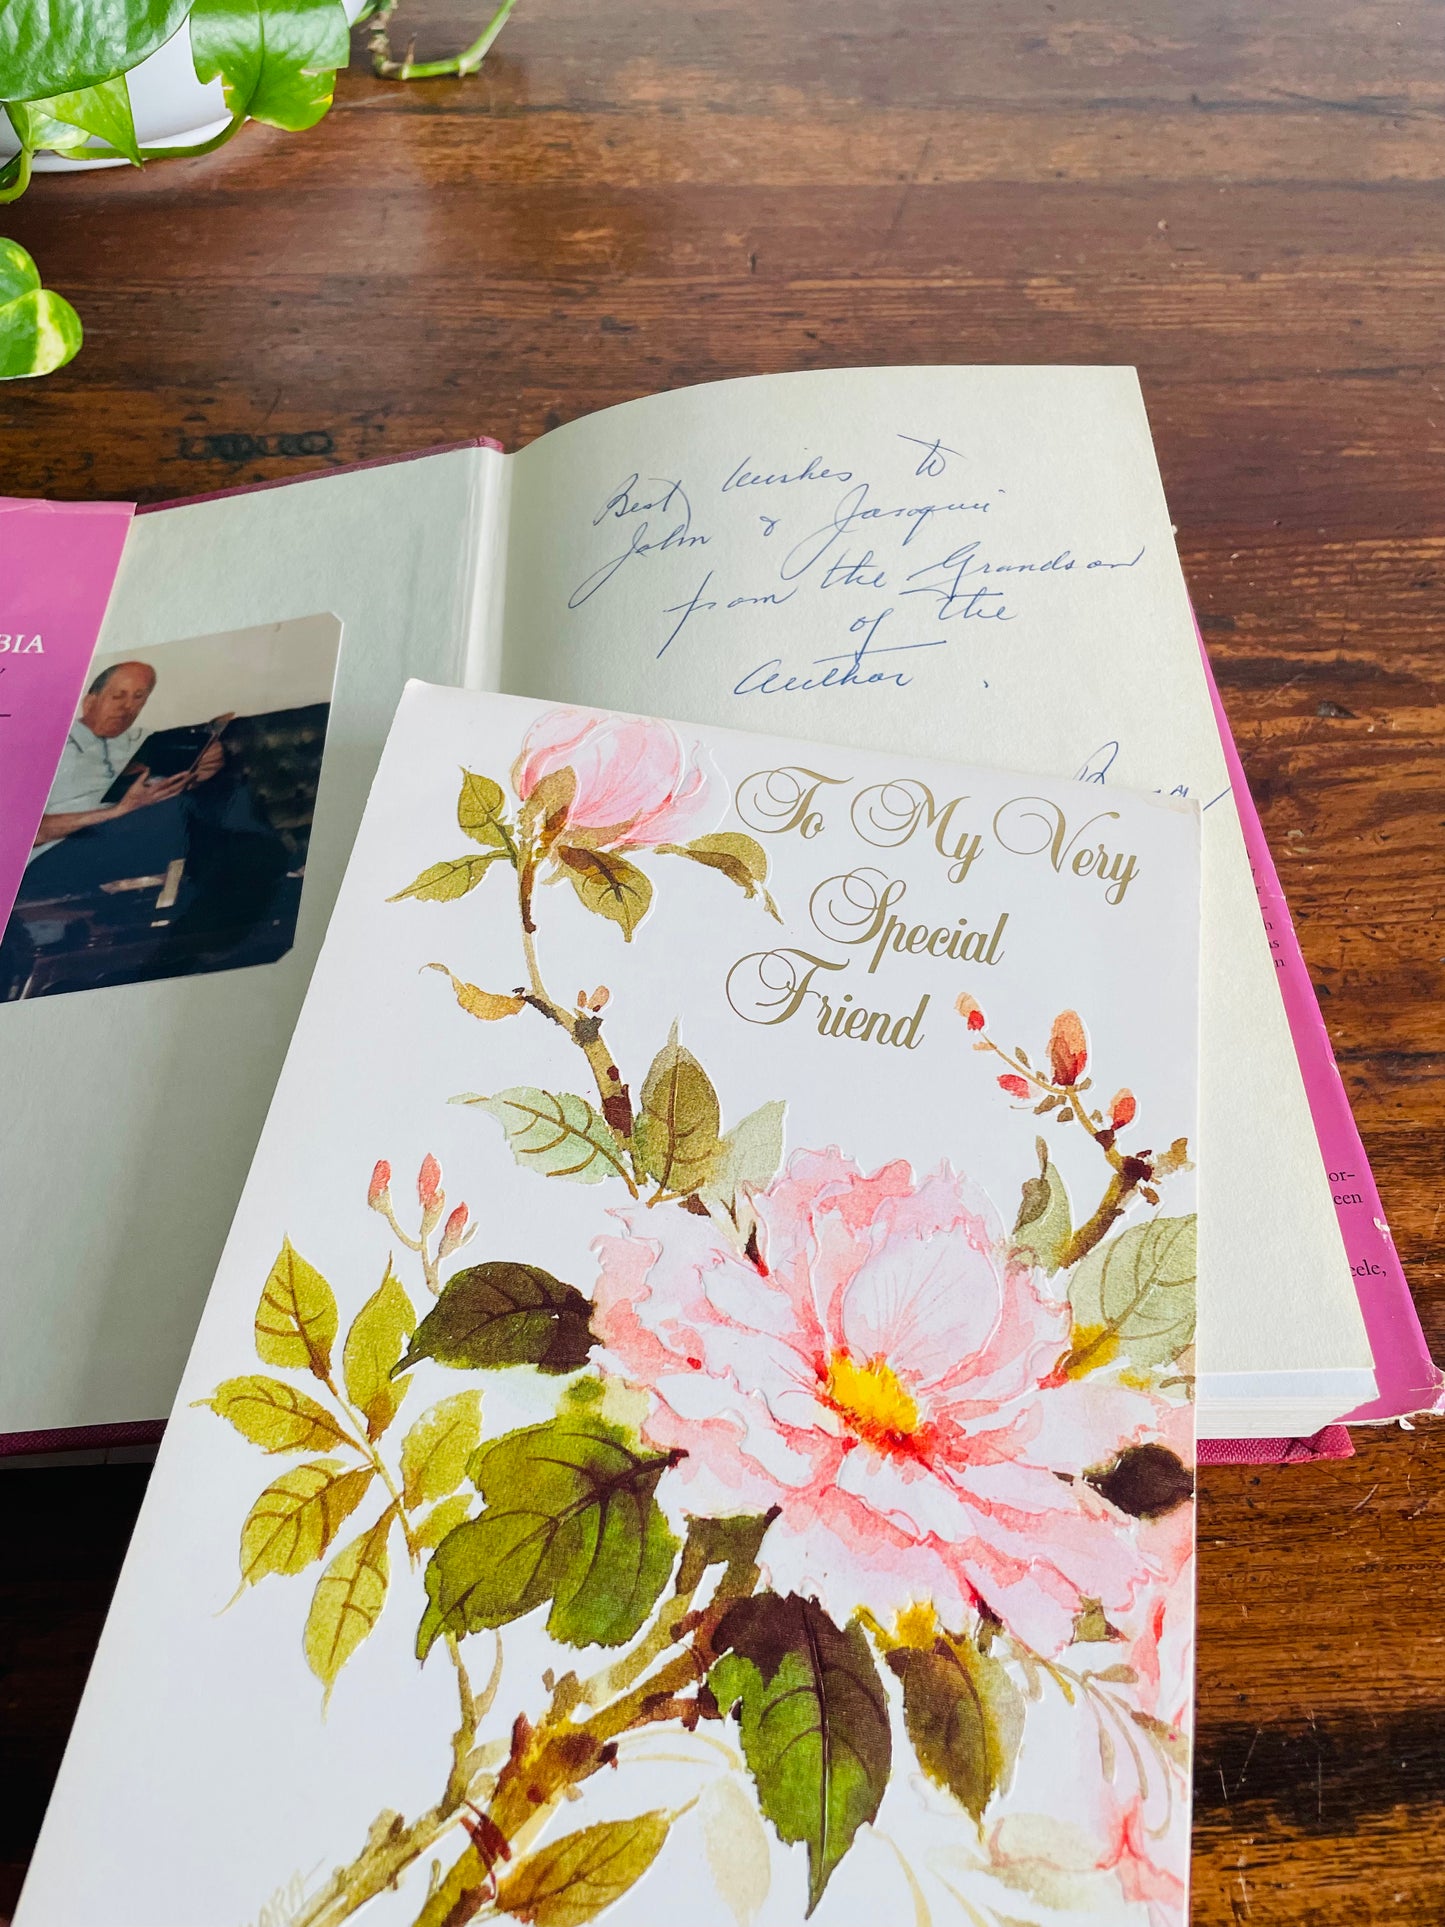 BIA
Best wishes to
John & Jacquii
from the Grandson
of the
Author.
To My Very
Special
Friend
or-
een
eele,